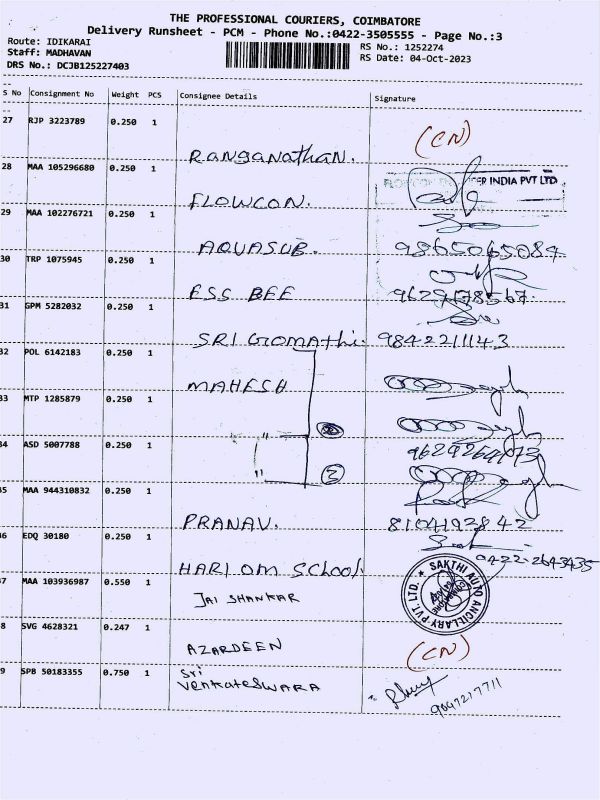 THE PROFESSIONAL COURIERS, COIMBATORE
Delivery Runsheet - PCM - Phone No.:0422-3505555 - Page No.:3
Route: IDIKARAI
RS No.: 1252274
Staff: MADHAVAN
RS Date: 04-Oct-2023
DRS No.: DCJB125227403
S No Consignment No Weight PCS Consignee Details Signature
27 RJP 3223789 0.250 1
(CN)
Ranganathan.
28 MAA 105296680 0.250 1
ER INDIA PVT LTD
FLOWCON.
29 MAA 102276721 0.250 1
AQUASUB. 9865065084
30 TRP 1075945 0.250 1
ESS BEE 9629178567.
31 GPM 5282032 0.250 1
SRI Gomathi. 9842211143
32 POL 6142183 0.250 1
MAHESH
33 MTP 1285879 0.250 1
34 ASD 5007788 0.250 1
"
" 3
35 MAA 944310832 0.250 1
PRANAV. 8104192842
36 EDQ 30180 0.250 1
0422-2643435
HARI OM School.
37 MAA 103936987 0.550 1
JAI SHANKAR
SAKTHI AUTO ANCILLARY PVT. LTD.
38 SVG 4628321 0.247 1
AZARDEEN
(CN)
39 SPB 50183355 0.750 1
Sri
Venkateswara
9047217711